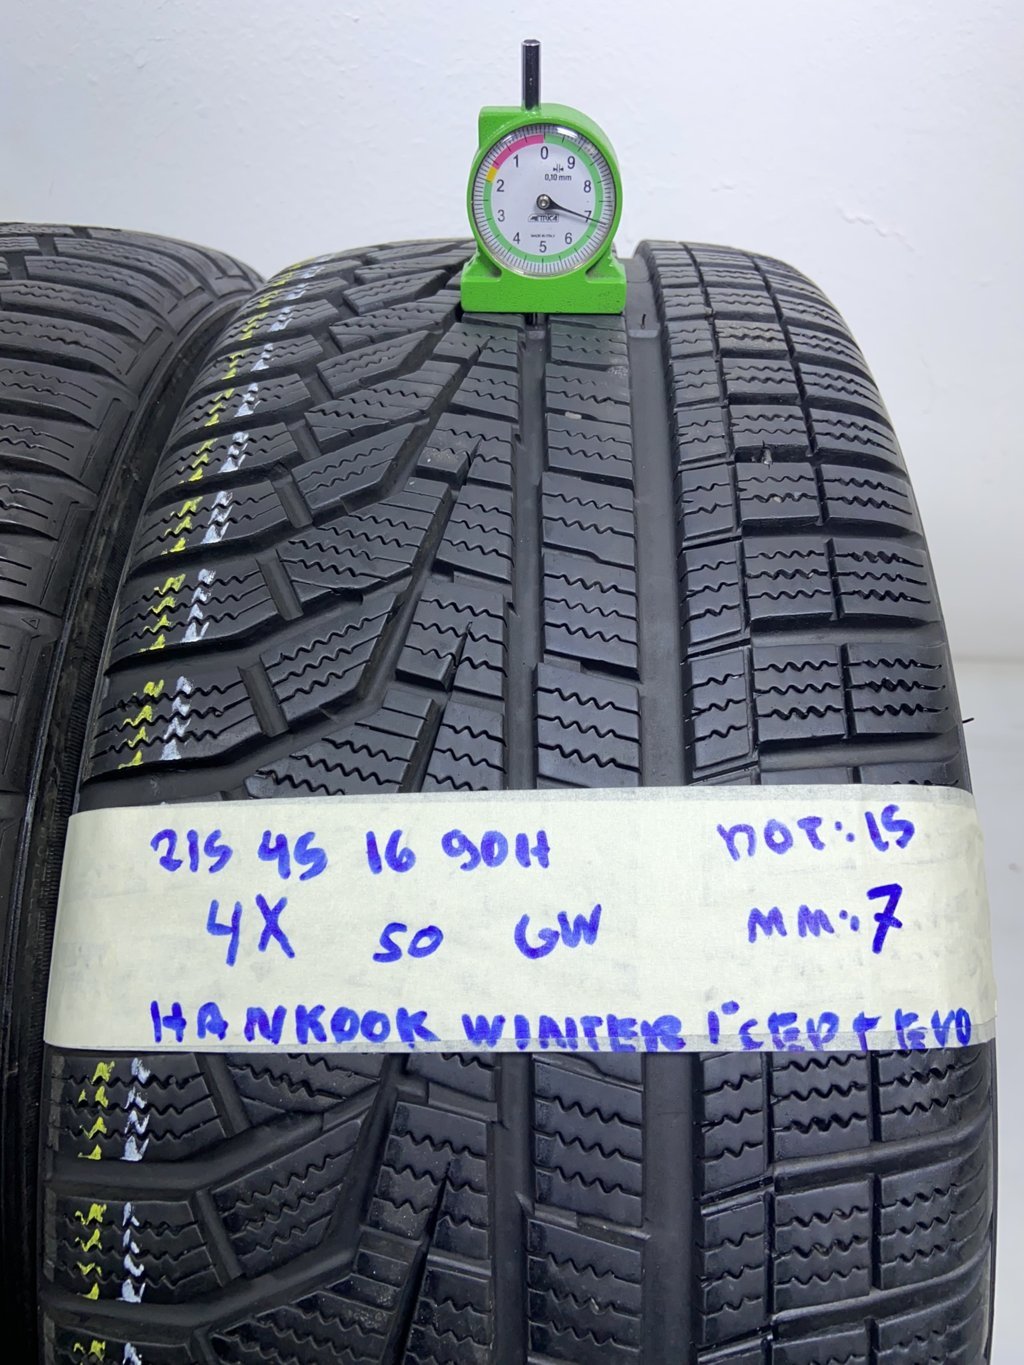 0
1 9
0,10 mm
2 8
METRICA
3 7
MADE IN ITALY
4 5 6
215 45 16 90H DOT: 15
4X 50 GW MM: 7
HANKOOK WINTER I*CEPT EVO